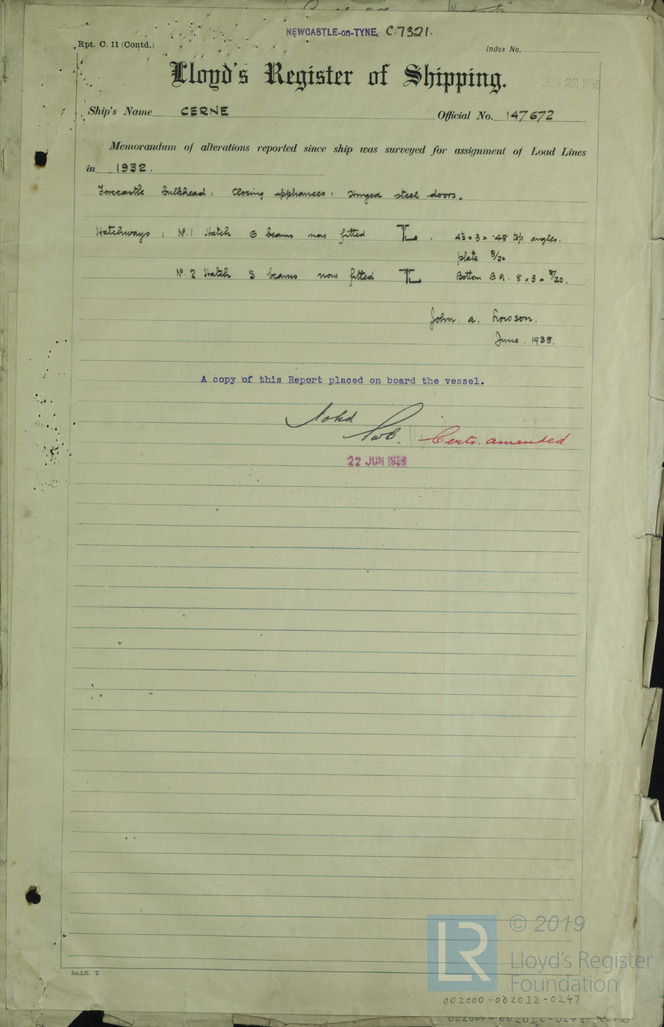 NEWCASTLE-on-TYNE, C.7321.
Rpt. C. 11 (Contd.)
Index No.
JUN 22 1938
Lloyd's Register of Shipping.
Ship's Name CERNE
Official No. 147672
Memorandum of alterations reported since ship was surveyed for assignment of Load Lines
in 1932.
Forecastle Bulkhead: Closing appliances: Hinged steel doors.
Hatchways: No. 1 Hatch 6 beams now fitted
top angles.
plate
No. 2 Hatch 5 beams now fitted
Bottom B.A. 8 x 3 x
John. A. Lowson.
June. 1938.
A copy of this Report placed on board the vessel.
Noted
Certs. amended
22 JUN 1938
© 2019
LR
Lloyd's Register
Foundation
002000-002012-0247